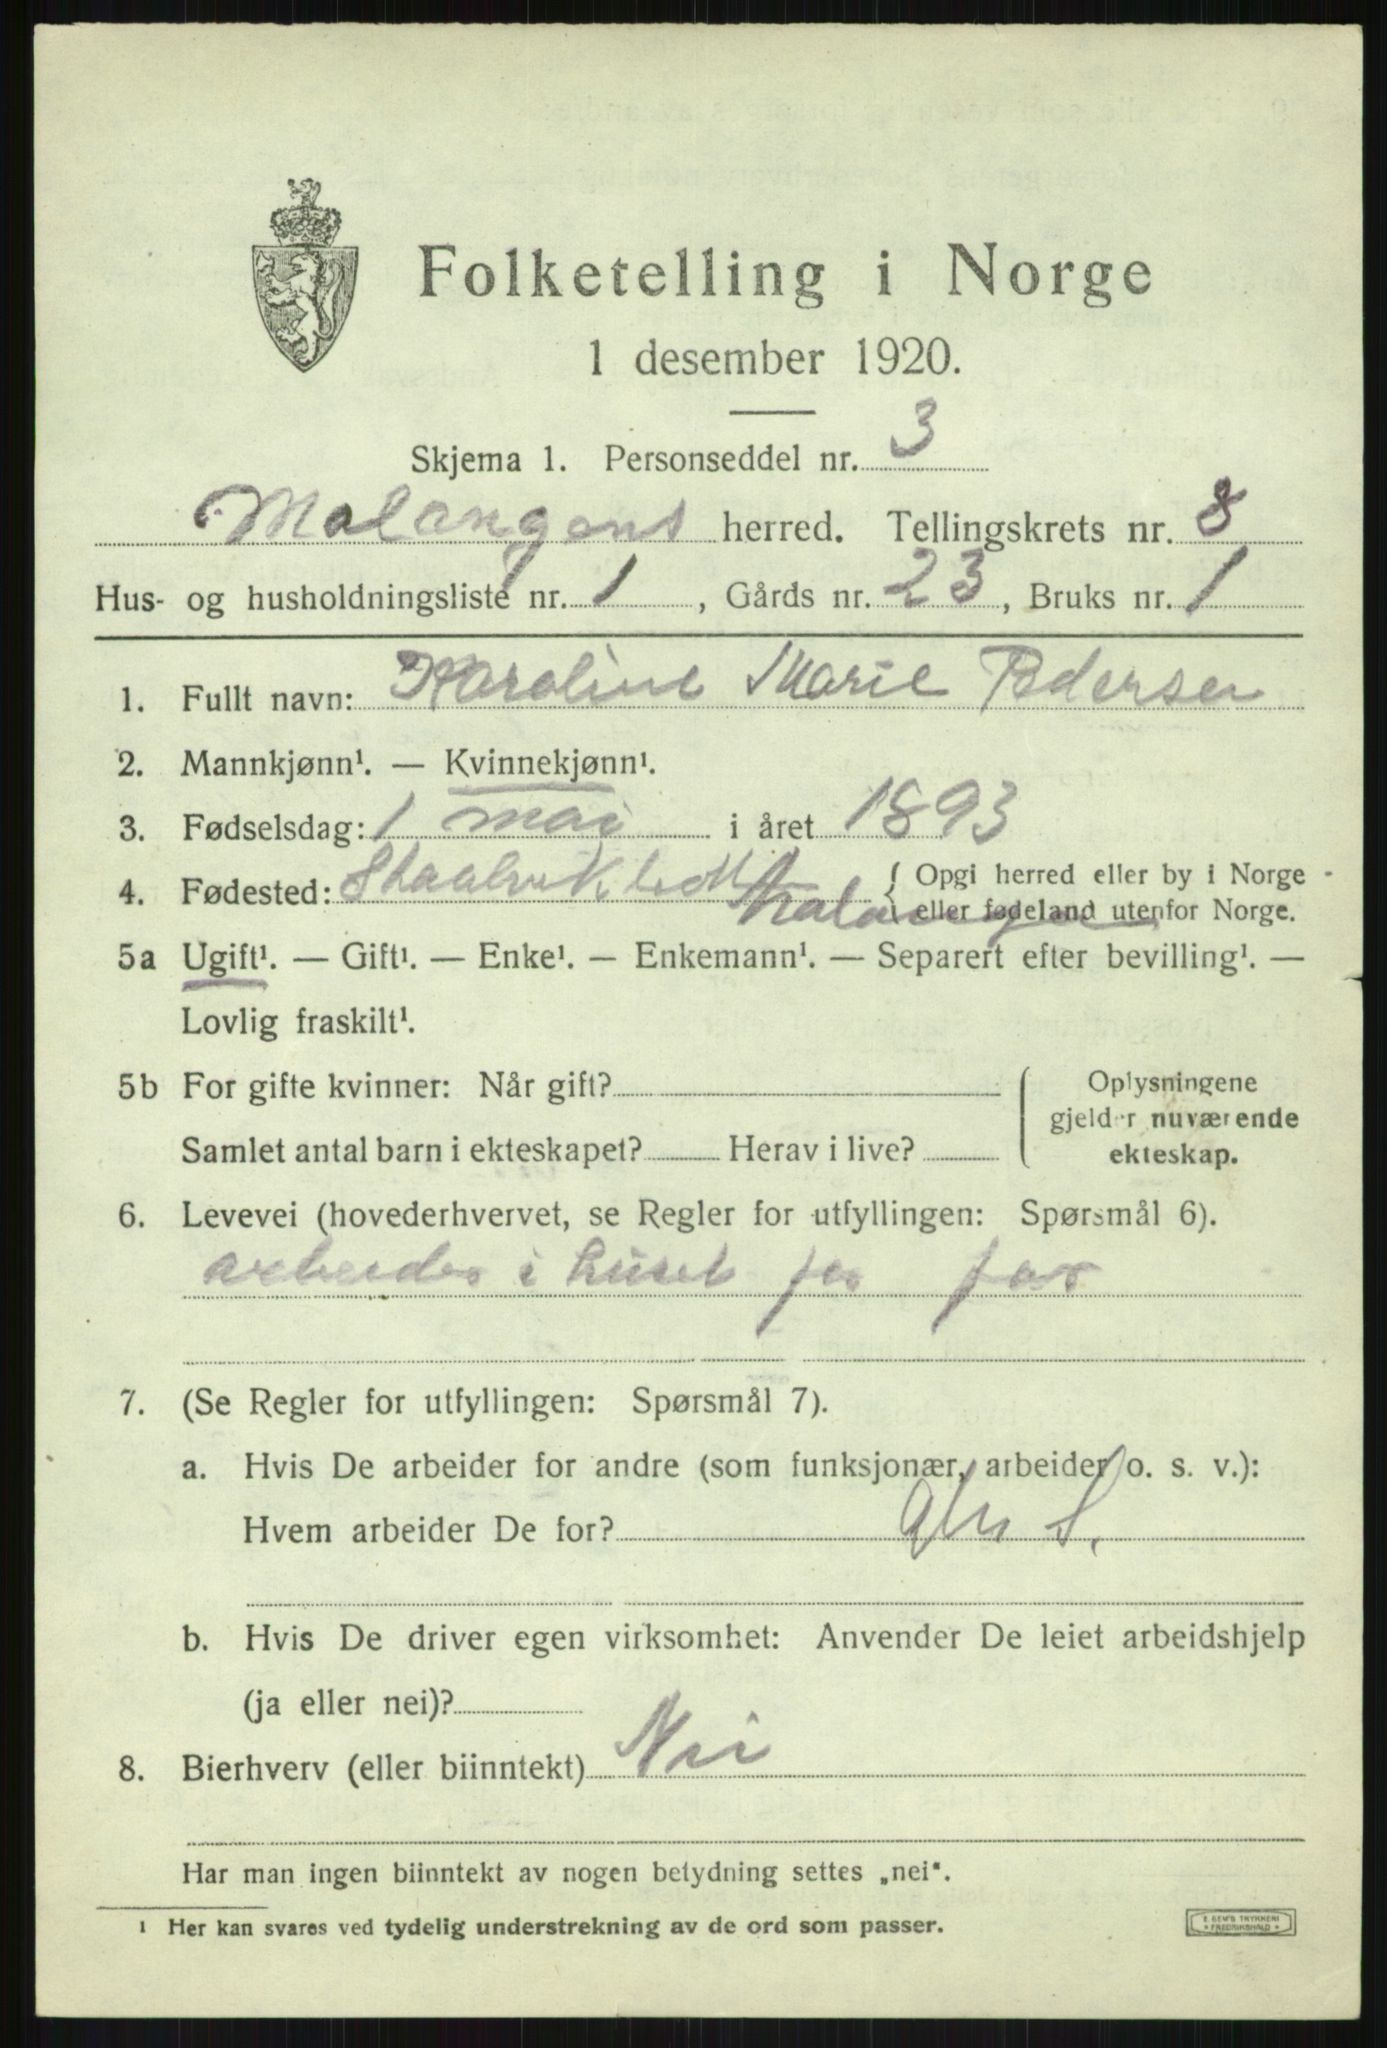 Folketelling i Norge
1 desember 1920.
Skjema 1. Personseddel nr. 3
Malangens herred. Tellingskrets nr. 8
Hus- og husholdningsliste nr. 1, Gårds nr. 23, Bruks nr. 1
1. Fullt navn: Karoline Marie Pedersen
2. Mannkjønn¹. — Kvinnekjønn¹.
3. Fødselsdag: 1 mai i året 1893
4. Fødested: Malangen { Opgi herred eller by i Norge
eller fødeland utenfor Norge.
5a Ugift¹. — Gift¹. — Enke¹. — Enkemann¹. — Separert efter bevilling¹. —
Lovlig fraskilt¹.
5b For gifte kvinner: Når gift? { Oplysningene
gjelder nuværende
Samlet antal barn i ekteskapet? Herav i live? ekteskap.
6. Levevei (hovederhvervet, se Regler for utfyllingen: Spørsmål 6).
arbeider i huset for far
7. (Se Regler for utfyllingen: Spørsmål 7).
a. Hvis De arbeider for andre (som funksjonær, arbeider o. s. v.):
Hvem arbeider De for?
b. Hvis De driver egen virksomhet: Anvender De leiet arbeidshjelp
(ja eller nei)?
8. Bierhverv (eller biinntekt) Nei
Har man ingen biinntekt av nogen betydning settes „nei“.
¹ Her kan svares ved tydelig understrekning av de ord som passer.
E. SEM'S TRYKKERI
* FREDRIKSHALD *